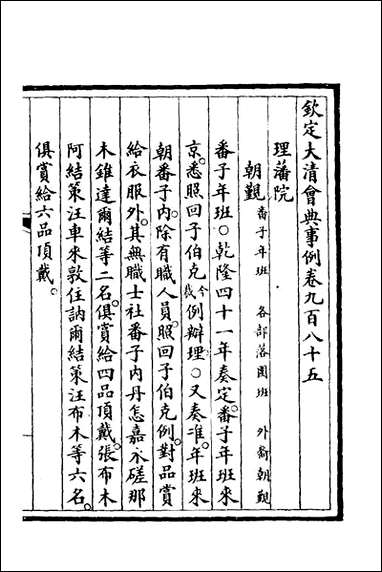 欽定大清會典事例卷九百八十五
理藩院
朝覲 番子年班 各部落圍班 外裔朝覲
番子年班○乾隆四十一年奏定番子年班來
京悉照回子伯克今裁例辦理○又奏准年班來
朝番子內除有職人員照回子伯克例對品賞
給衣服外其無職土社番子內丹怎嘉永磋那
木錐達爾結等二名俱賞給四品頂戴張布木
阿結策汪車來敦住訥爾結策汪布木等六名
俱賞給六品頂戴